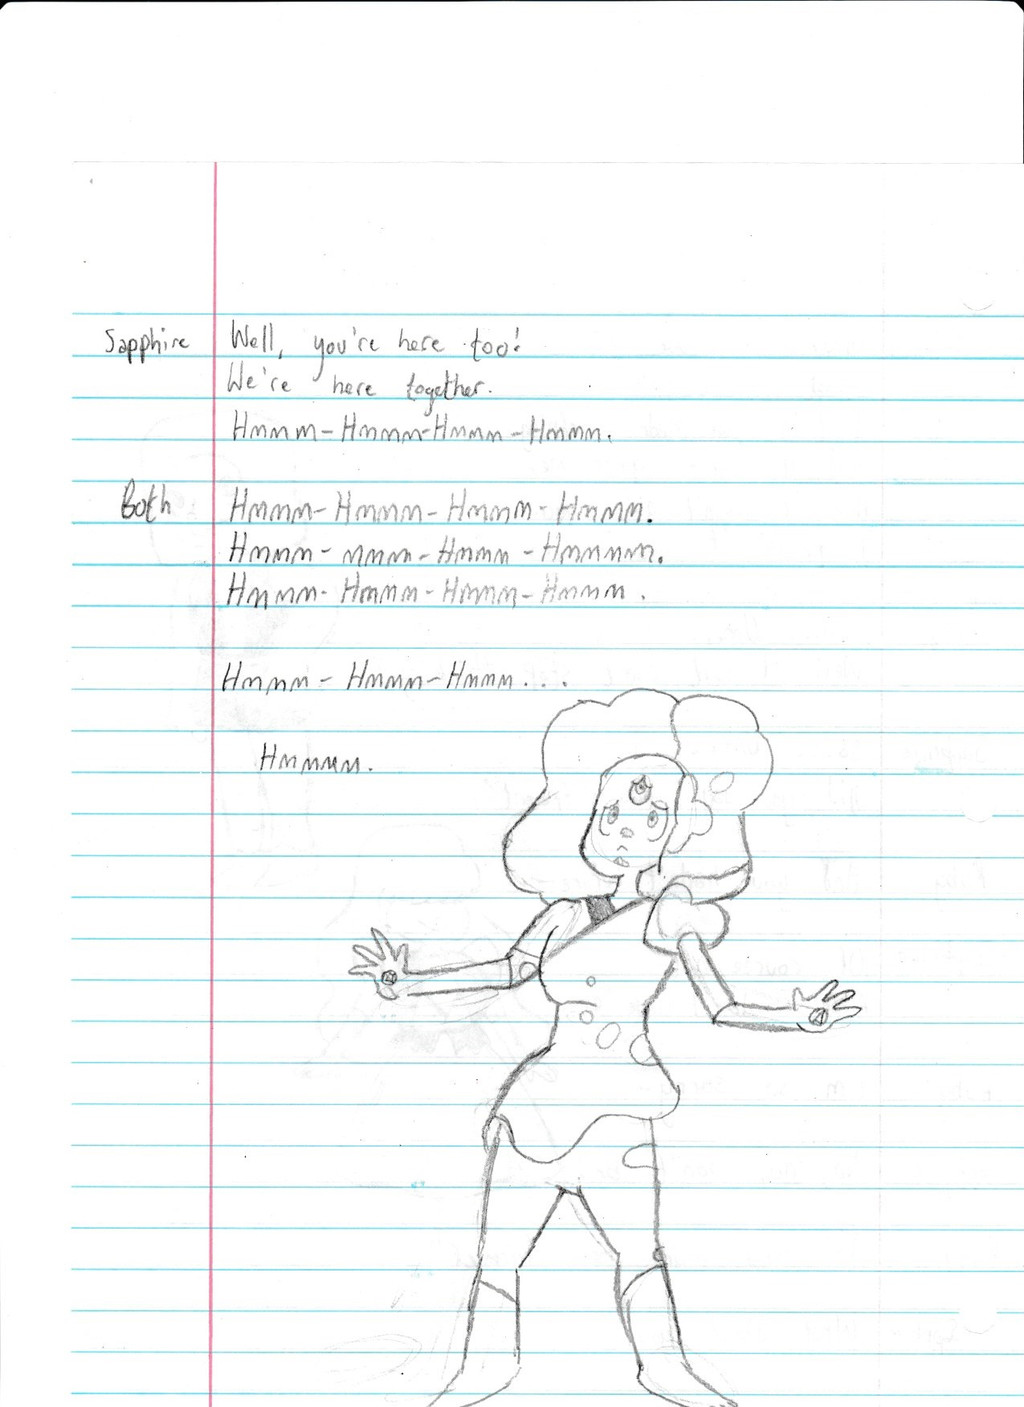 Sapphire Well, you're here too!
We're here together.
Hmmm-Hmmm-Hmmm-Hmmm.
Both Hmmm-Hmmm-Hmmm-Hmmm.
Hmmm-mmm-Hmmm-Hmmmm.
Hmmm-Hmmm-Hmmm-Hmmm.
Hmmm-Hmmm-Hmmm...
Hmmmm.